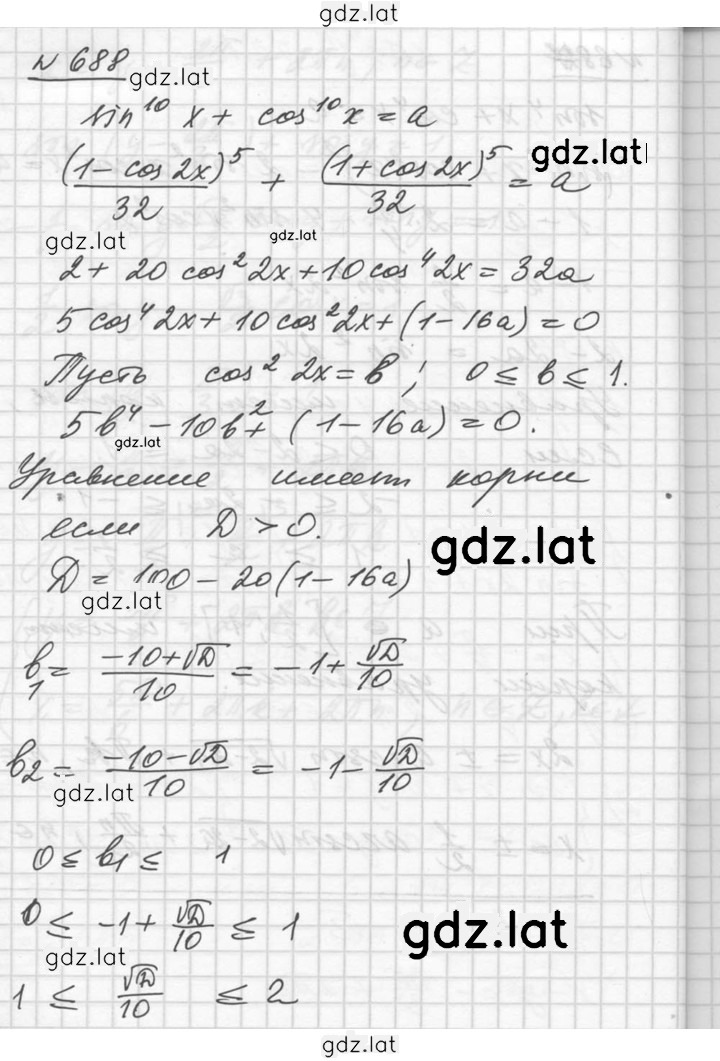 gdz.lat
№ 688
gdz.lat
sin¹⁰ x + cos¹⁰ x = a
(1 - cos 2x)⁵/32 + (1 + cos 2x)⁵/32 = a
gdz.lat
gdz.lat
gdz.lat
2 + 20 cos² 2x + 10 cos⁴ 2x = 32a
5 cos⁴ 2x + 10 cos² 2x + (1 - 16a) = 0
Пусть cos² 2x = b ; 0 ≤ b ≤ 1.
5b⁴ - 10b² + (1 - 16a) = 0.
gdz.lat
Уравнение имеет корни
если D > 0.
gdz.lat
D = 100 - 20(1 - 16a)
gdz.lat
b₁ = (-10 + √D)/10 = -1 + √D/10
b₂ = (-10 - √D)/10 = -1 - √D/10
gdz.lat
0 ≤ b₁ ≤ 1
0 ≤ -1 + √D/10 ≤ 1
gdz.lat
gdz.lat
1 ≤ √D/10 ≤ 2
gdz.lat